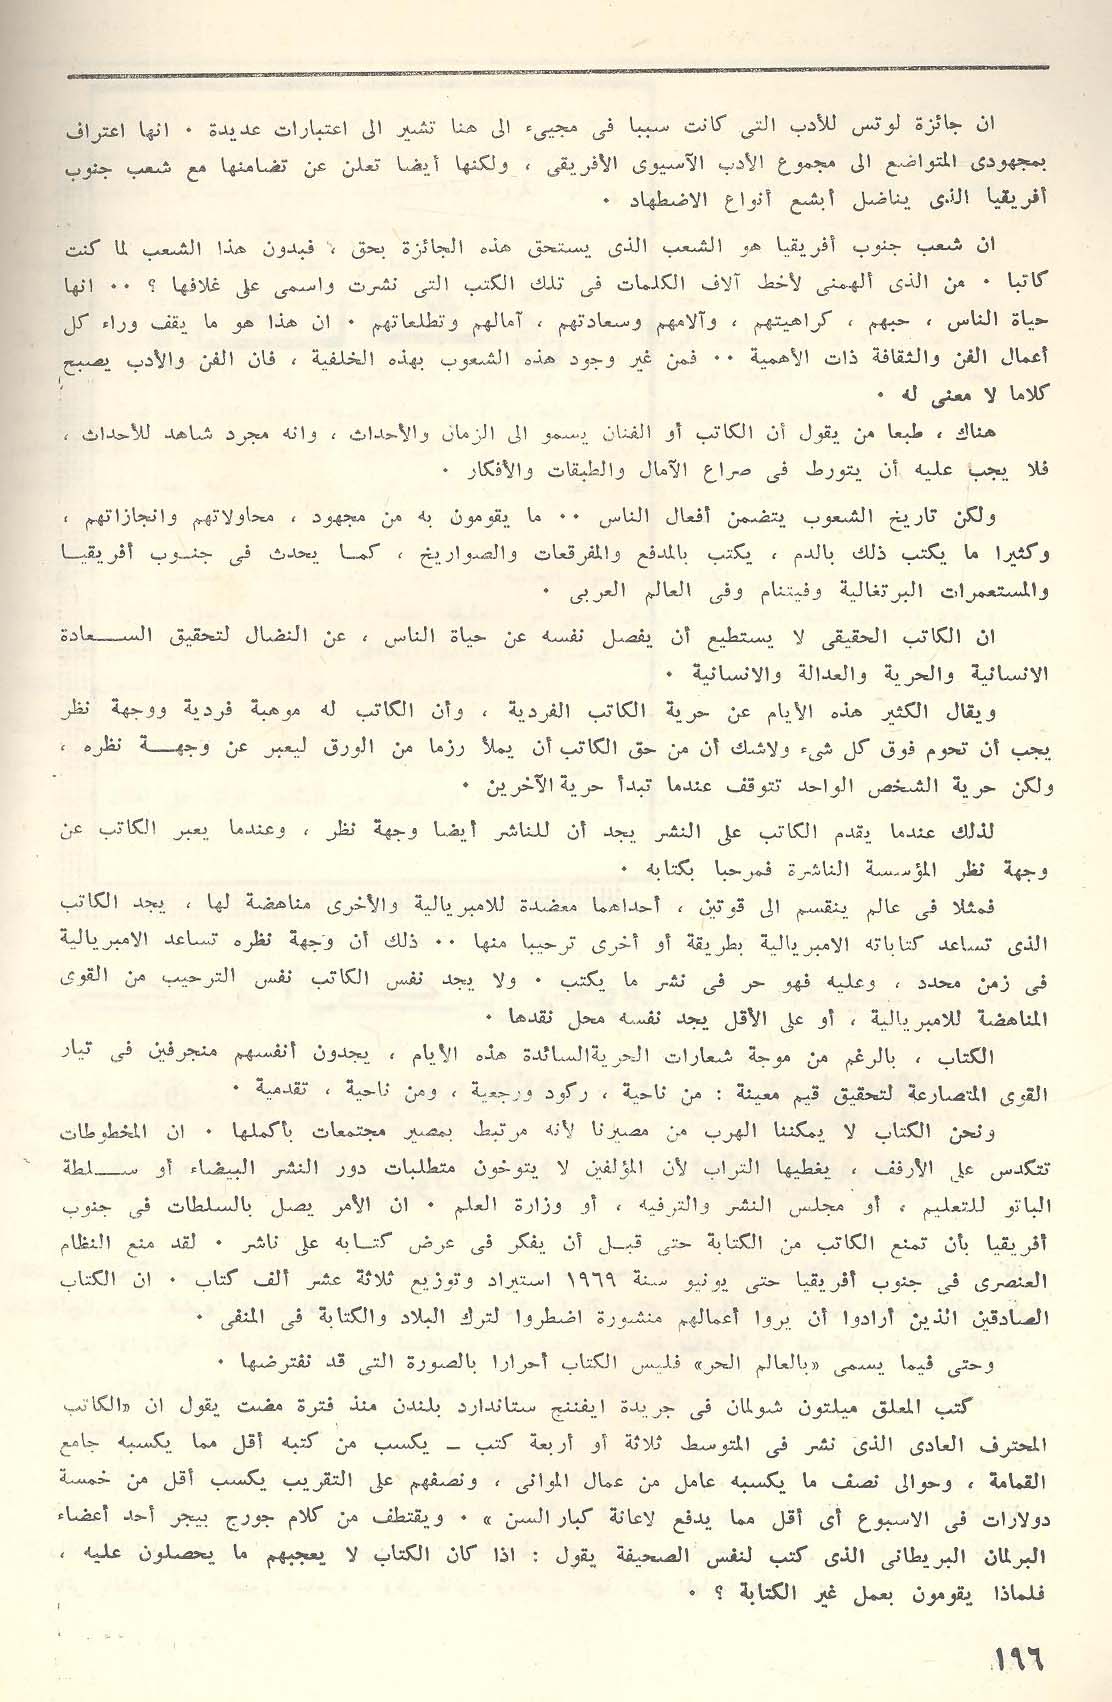 ان جائزة لوتس للأدب التى كانت سببا فى مجيىء الى هنا تشير الى اعتبارات عديدة ٠ انها اعتراف
بمجهودى المتواضع الى مجموع الأدب الآسيوى الأفريقى ، ولكنها أيضا تعلن عن تضامنها مع شعب جنوب
أفريقيا الذى يناضل أبشع أنواع الاضطهاد ٠
ان شعب جنوب أفريقيا هو الشعب الذى يستحق هذه الجائزة بحق ، فبدون هذا الشعب لما كنت
كاتبا ٠ من الذى ألهمنى لأخط آلاف الكلمات فى تلك الكتب التى نشرت واسمى على غلافها ؟ ٠٠ انها
حياة الناس ، حبهم ، كراهيتهم ، وآلامهم وسعادتهم ، آمالهم وتطلعاتهم ٠ ان هذا هو ما يقف وراء كل
أعمال الفن والثقافة ذات الأهمية ٠٠ فمن غير وجود هذه الشعوب بهذه الخلفية ، فان الفن والأدب يصبح
كلاما لا معنى له ٠
هناك ، طبعا من يقول أن الكاتب أو الفنان يسمو الى الزمان والأحداث ، وانه مجرد شاهد للأحداث ،
فلا يجب عليه أن يتورط فى صراع الآمال والطبقات والأفكار ٠
ولكن تاريخ الشعوب يتضمن أفعال الناس ٠٠ ما يقومون به من مجهود ، محاولاتهم وانجازاتهم ،
وكثيرا ما يكتب ذلك بالدم ، يكتب بالمدفع والمفرقعات والصواريخ ، كمـا يحدث فى جنـوب أفريقيـا
والمستعمرات البرتغالية وفيتنام وفى العالم العربى ٠
ان الكاتب الحقيقى لا يستطيع أن يفصل نفسه عن حياة الناس ، عن النضال لتحقيق الســعادة
الانسانية والحرية والعدالة والانسانية ٠
ويقال الكثير هذه الأيام عن حرية الكاتب الفردية ، وأن الكاتب له موهبة فردية ووجهة نظر
يجب أن تحوم فوق كل شىء ولاشك أن من حق الكاتب أن يملأ رزما من الورق ليعبر عن وجهــة نظره ،
ولكن حرية الشخص الواحد تتوقف عندما تبدأ حرية الآخرين ٠
لذلك عندما يقدم الكاتب على النشر يجد أن للناشر أيضا وجهة نظر ، وعندما يعبر الكاتب عن
وجهة نظر المؤسسة الناشرة فمرحبا بكتابه ٠
فمثلا فى عالم ينقسم الى قوتين ، أحداهما معضدة للامبريالية والأخرى مناهضة لها ، يجد الكاتب
الذى تساعد كتاباته الامبريالية بطريقة أو أخرى ترحيبا منها ٠٠ ذلك أن وجهة نظره تساعد الامبريالية
فى زمن محدد ، وعليه فهو حر فى نشر ما يكتب ٠ ولا يجد نفس الكاتب نفس الترحيب من القوى
المناهضة للامبريالية ، أو على الأقل يجد نفسه محل نقدها ٠
الكتاب ، بالرغم من موجة شعارات الحرية السائدة هذه الأيام ، يجدون أنفسهم منجرفين فى تيار
القوى المتصارعة لتحقيق قيم معينة : من ناحية ، ركود ورجعية ، ومن ناحية ، تقدمية ٠
ونحن الكتاب لا يمكننا الهرب من مصيرنا لأنه مرتبط بمصير مجتمعات بأكملها ٠ ان المخطوطات
تتكدس على الأرفف ، يغطيها التراب لأن المؤلفين لا يتوخون متطلبات دور النشر البيضاء أو ســلطة
الباتو للتعليم ، أو مجلس النشر والترفيه ، أو وزارة العلم ٠ ان الأمر يصل بالسلطات فى جنوب
أفريقيا بأن تمنع الكاتب من الكتابة حتى قبـل أن يفكر فى عرض كتـابه على ناشر ٠ لقد منع النظام
العنصرى فى جنوب أفريقيا حتى يونيو سنة ١٩٦٩ استيراد وتوزيع ثلاثة عشر ألف كتاب ٠ ان الكتاب
الصادقين الذين أرادوا أن يروا أعمالهم منشورة اضطروا لترك البلاد والكتابة فى المنفى ٠
وحتى فيما يسمى «بالعالم الحر» فليس الكتاب أحرارا بالصورة التى قد نفترضها ٠
كتب المعلق ميلتون شولمان فى جريدة ايفننج ستاندارد بلندن منذ فترة مضت يقول ان «الكاتب
المحترف العادى الذى نشر فى المتوسط ثلاثة أو أربعة كتب ـ يكسب من كتبه أقل مما يكسبه جامع
القمامة ، وحوالى نصف ما يكسبه عامل من عمال الموانى ، ونصفهم على التقريب يكسب أقل من خمسة
دولارات فى الاسبوع أى أقل مما يدفع لاعانة كبار السن » ٠ ويقتطف من كلام جورج بيجر أحد أعضاء
البرلمان البريطانى الذى كتب لنفس الصحيفة يقول : اذا كان الكتاب لا يعجبهم ما يحصلون عليه ،
فلماذا يقومون بعمل غير الكتابة ؟ ٠
١٩٦